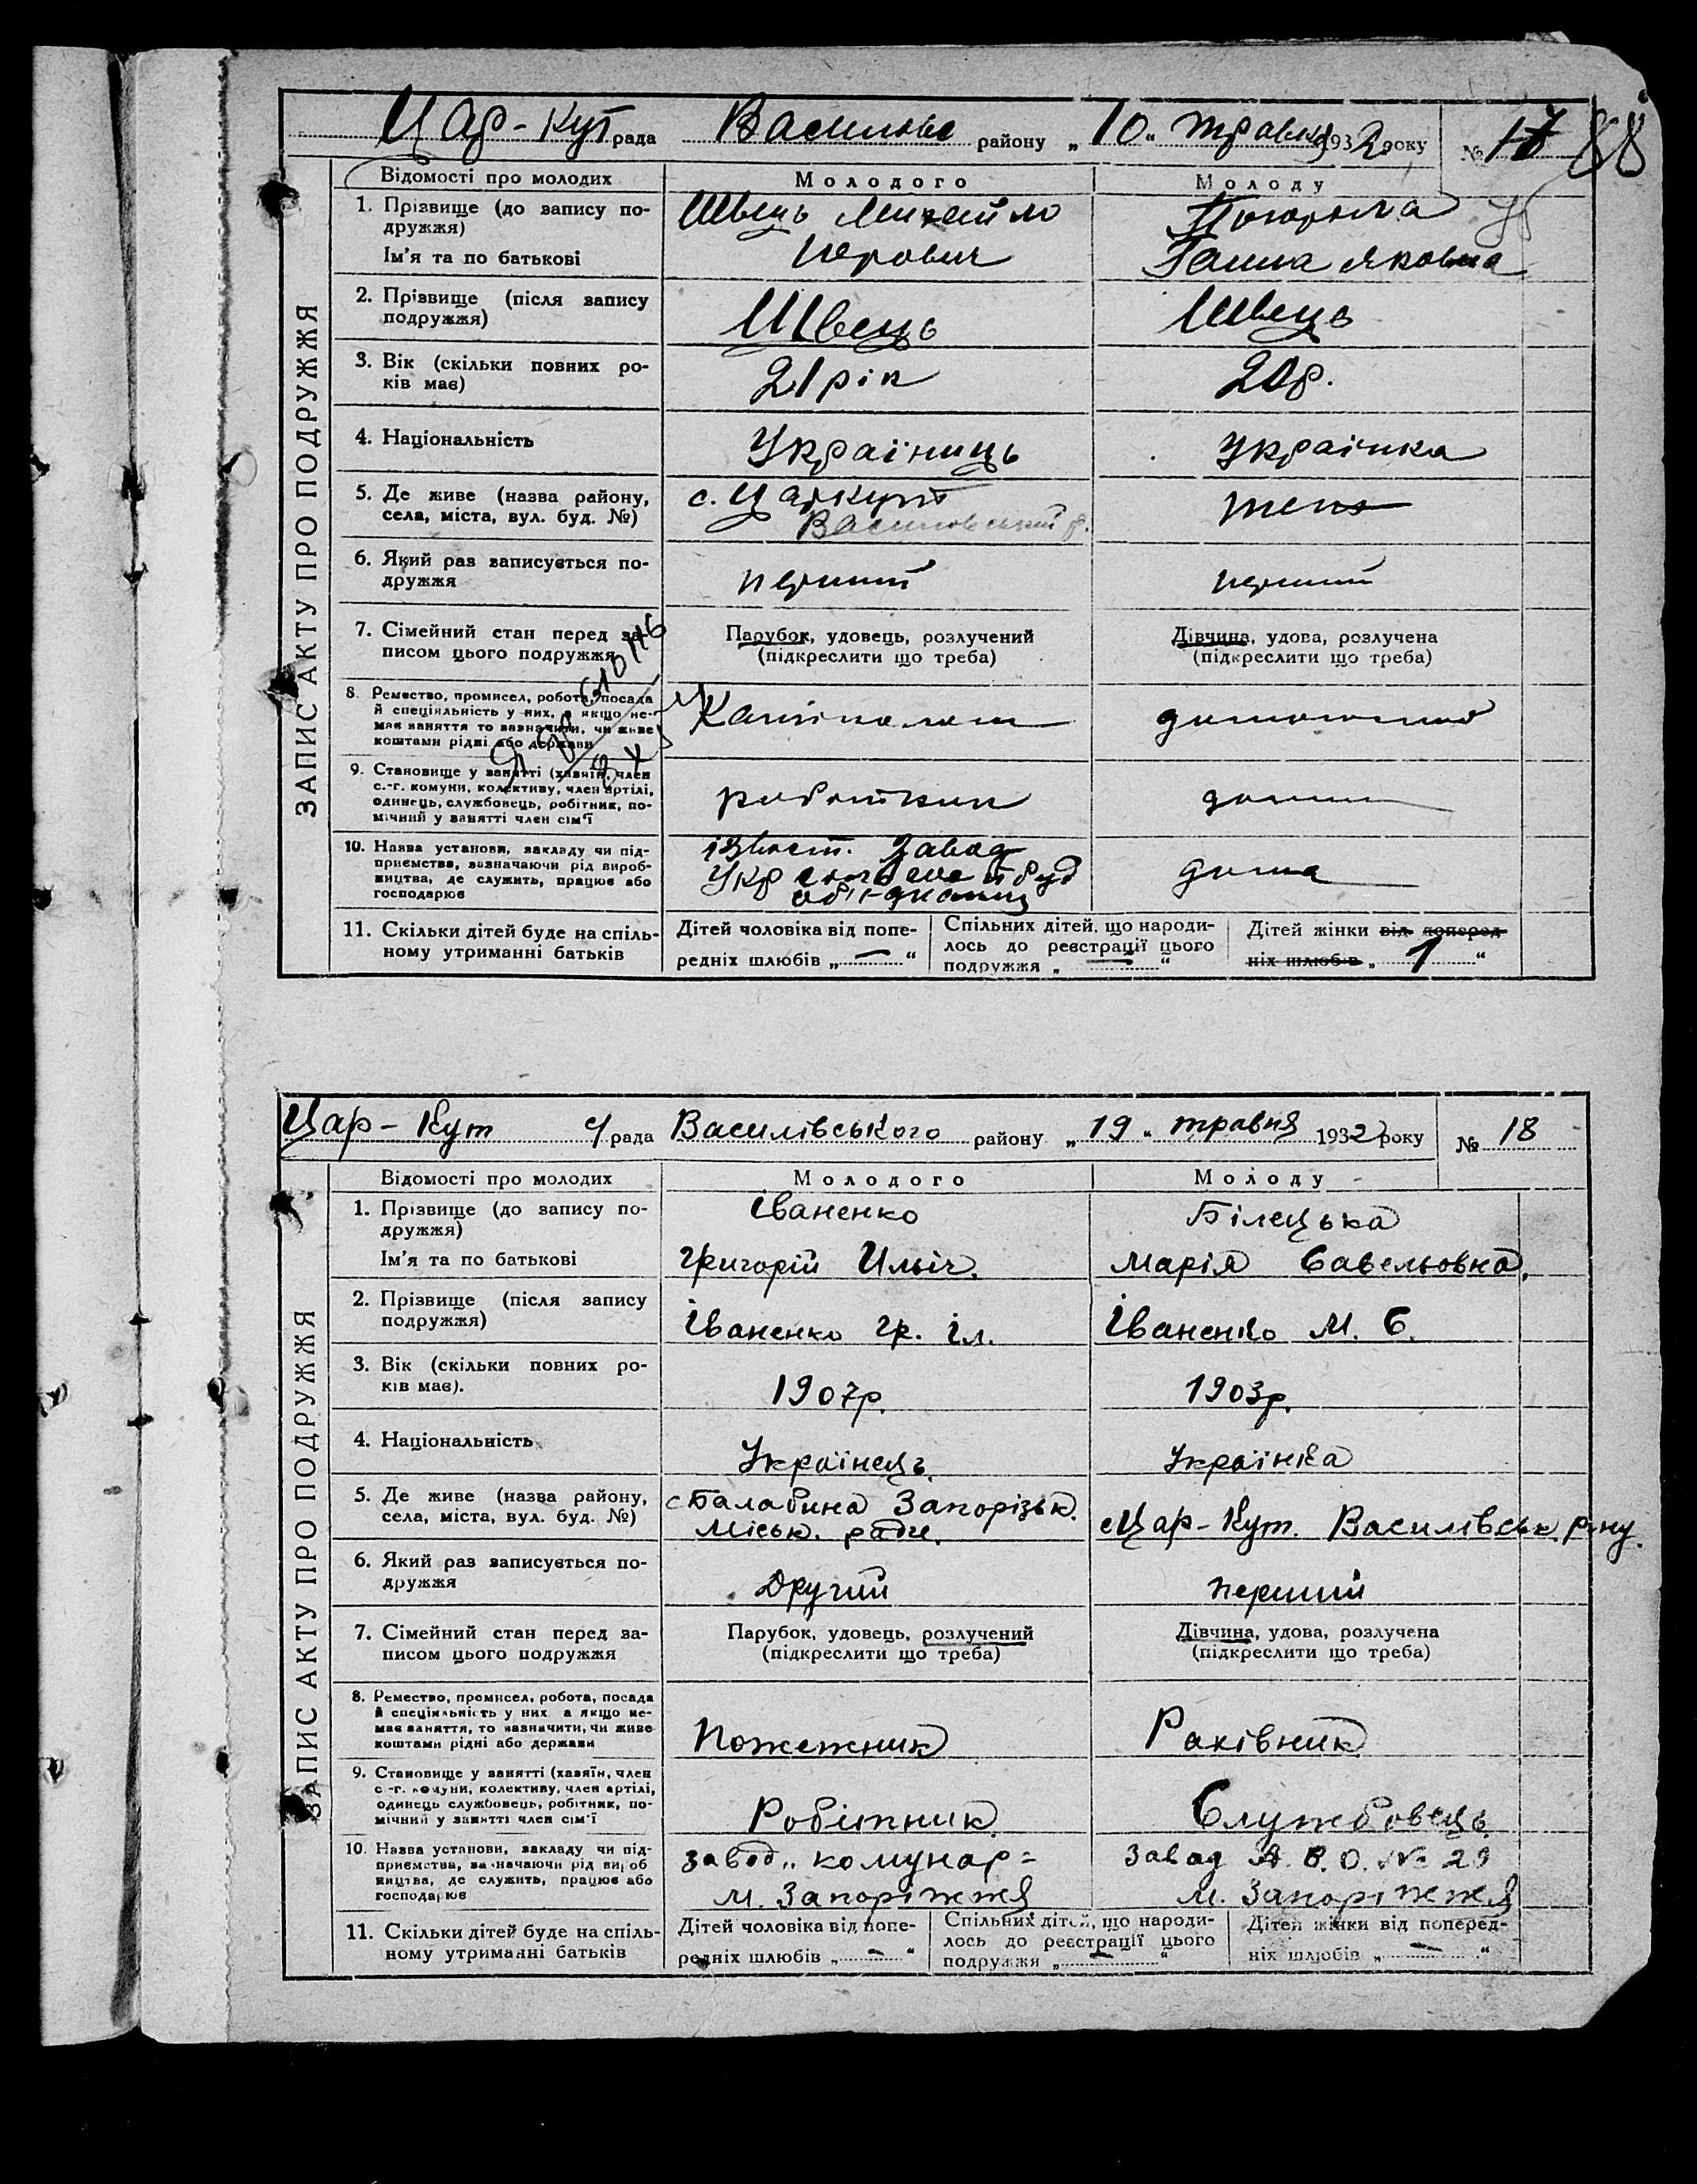 Цар-Кут рада Василівс району „10" травня 1932 року № 17 88
ЗАПИС АКТУ ПРО ПОДРУЖЖЯ
Відомості про молодих Молодого Молоду
1. Прізвище (до запису по-
дружжя)
Швець Михайло
Ім'я та по батькові
Ганна Яковна
2. Прізвище (після запису
подружжя)
Швець Швець
3. Вік (скільки повних ро-
ків має)
21 рік 20 р.
4. Національність Україниць Українка
5. Де живе (назва району,
села, міста, вул. буд. №)
с. Царкут
Василовський р.
6. Який раз записується по-
дружжя
перший перший
7. Сімейний стан перед за-
писом цього подружжя
Парубок, удовець, розлучений
(підкреслити що треба)
Дівчина, удова, розлучена
(підкреслити що треба)
8. Ремество, промисел, робота, посада
й спеціяльність у них, а якщо не-
має заняття то зазначити, чи живе
коштами рідні або держави
9. Становище у занятті (хазяїн, член
с.-г. комуни, колективу, член артілі,
одинець, службовець, робітник, по-
мічний у занятті член сім'ї
10. Назва установи, закладу чи під-
приємства, зазначаючи рід вироб-
ництва, де служить, працює або
господарює
ізвост. завод
дома
11. Скільки дітей буде на спіль-
ному утриманні батьків
Дітей чоловіка від попе-
редніх шлюбів „—"
Спільних дітей, що народи-
лось до реєстрації цього
подружжя „—"
Дітей жінки від поперед-
ніх шлюбів „1"
Цар-Кут с/рада Василівського району „19" травня 1932 року № 18
ЗАПИС АКТУ ПРО ПОДРУЖЖЯ
Відомості про молодих Молодого Молоду
1. Прізвище (до запису по-
дружжя)
Іваненко Білецька
Ім'я та по батькові
Григорій Ильіч. Марія Савельовна.
2. Прізвище (після запису
подружжя)
Іваненко Гр. Іл. Іваненко М. С.
3. Вік (скільки повних ро-
ків має).
1907р. 1903р.
4. Національність Українець. Українка
5. Де живе (назва району,
села, міста, вул. буд. №)
с Балабина Запорізьк.
Міськ. ради.
с Цар-Кут. Василівськ. р-ну.
6. Який раз записується по-
дружжя
Другий перший
7. Сімейний стан перед за-
писом цього подружжя
Парубок, удовець, розлучений
(підкреслити що треба)
Дівчина, удова, розлучена
(підкреслити що треба)
8. Ремество, промисел, робота, посада
й спеціяльність у них а якщо не-
має заняття, то зазначити, чи живе
коштами рідні або держави
Пожежник Рахівник
9. Становище у занятті (хазяїн, член
с.-г. комуни, колективу, член артілі,
одинець службовець, робітник, по-
мічний у занятті член сім'ї
Робітник. Службовець.
10. Назва установи, закладу чи під-
приємства, зазначаючи рід вироб
ництва, де служить, працює або
господарює
завод „комунар=
м. Запоріжжя
Завод А. В. О. № 29
м. Запоріжжя
11. Скільки дітей буде на спіль-
ному утриманні батьків
Дітей чоловіка від попе-
редніх шлюбів „—"
Спільних дітей, що народи-
лось до реєстрації цього
подружжя „—"
Дітей жінки від поперед-
ніх шлюбів „—"